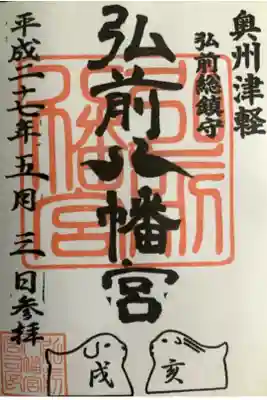 奥州津軽
弘前総鎮守
弘前八幡宮
平成二十七年五月三日参拝
弘前八幡宮
戌
亥